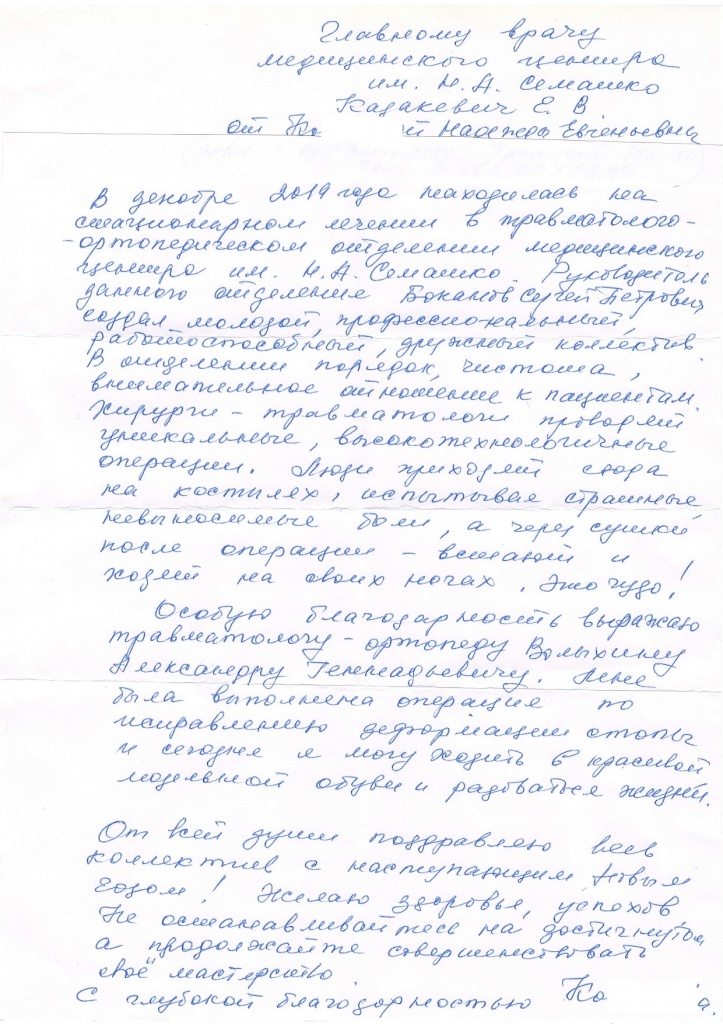 Главному врачу
медицинского центра
им. Н. А. Семашко
Казакевич Е. В
от Ко й Надежды Евгеньевны
В декабре 2019 года находилась на
стационарном лечении в травматолого-
-ортопедическом отделении медицинского
центра им. Н.А. Семашко Руководитель
данного отделения Боканов Сергей Петрович
создал молодой, профессиональный,
работоспособный, дружный коллектив.
В отделении порядок, чистота,
внимательное отношение к пациентам.
Хирурги - травматологи проводят
уникальные, высокотехнологичные
операции. Люди приходят сюда
на костылях, испытывая страшные,
невыносимые боли, а через сутки
после операции - встают и
ходят на своих ногах. Это чудо!
Особую благодарность выражаю
травматологу - ортопеду Волыхину
Александру Геннадьевичу. Мне
была выполнена операция по
исправлению деформации стопы
и сегодня я могу ходить в красивой
модельной обуви и радоваться жизни.
От всей души поздравляю весь
коллектив с наступающим Новым
Годом! Желаю здоровья, успехов
Не останавливайтесь на достигнутом
а продолжайте совершенствовать
своё мастерство.
С глубокой благодарностью Ко а.